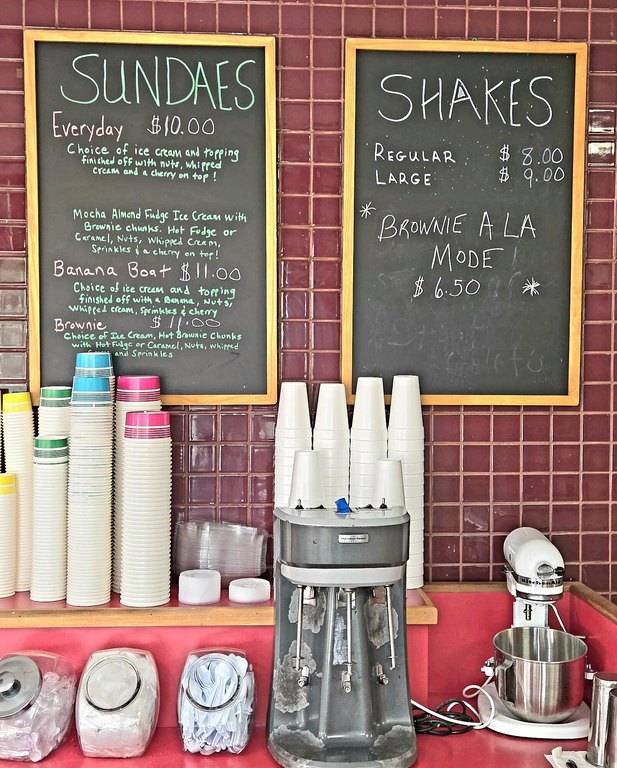 SUNDAES
Everyday $10.00
Choice of ice cream and topping
finished off with nuts, whipped
cream and a cherry on top!
Mocha Almond Fudge Ice Cream with
Brownie chunks. Hot Fudge or
Caramel, Nuts, Whipped Cream,
Sprinkles & a cherry on top!
Banana Boat $11.00
Choice of ice cream and topping
finished off with a Banana, Nuts,
Whipped cream, Sprinkles & cherry
Brownie $11.00
Choice of Ice Cream, Hot Brownie Chunks
with Hot Fudge or Caramel, Nuts, Whipped
and Sprinkles
SHAKES
REGULAR $8.00
LARGE $9.00
BROWNIE A LA
MODE
$6.50